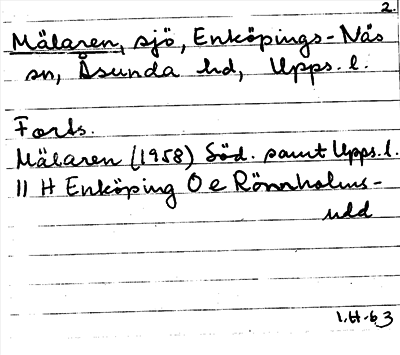 2.
Mälaren, sjö, Enköpings-Näs
sn, Åsunda hd, Upps. l.
Forts.
Mälaren (1958) Söd. samt Upps. l.
11 H Enköping O e Rönnholms-
udd
1.H.63